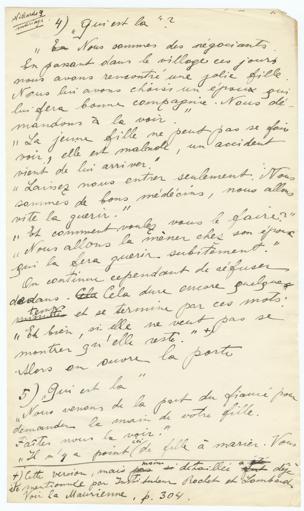 4) "Qui est là"?
" En Nous sommes des négociants.
En passant dans le village ces jours
nous avons rencontré une jolie fille.
Nous lui avons choisi un époux qui
lui fera bonne compagnie. Nous de-
mandons à la voir."
"La jeune fille ne peut pas se faire
voir, elle est malade, un accident
vient de lui arriver."
"Laissez nous entrer seulement. Nous
sommes de bons médecins, nous allons
vite la guérir."
"Et comment voulez vous le faire?"
"Nous allons la mener chez son époux
qui la fera guérir subitement."
On continue cependant de refuser
dedans. Cela dure encore quelques
temps et se termine par ces mots:
"Eh bien, si elle ne veut pas se
montrer qu'elle reste." +)
Alors on ouvre la porte
5) "Qui est là"
"Nous venons de la part du fiancé pour
demander la main de votre fille.
Faites nous la voir."
"Il n'y a point de fille à marier. Vous
+) Cette version, mais moins détaillée a été déjà
mentionnée par l'instituteur Rochet et Lombard
Voir la Maurienne, p. 304.